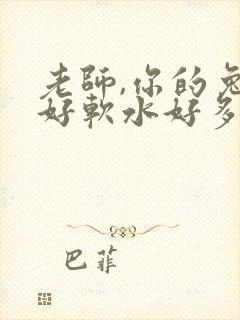 老師,你的兔
好軟水好多
巴菲